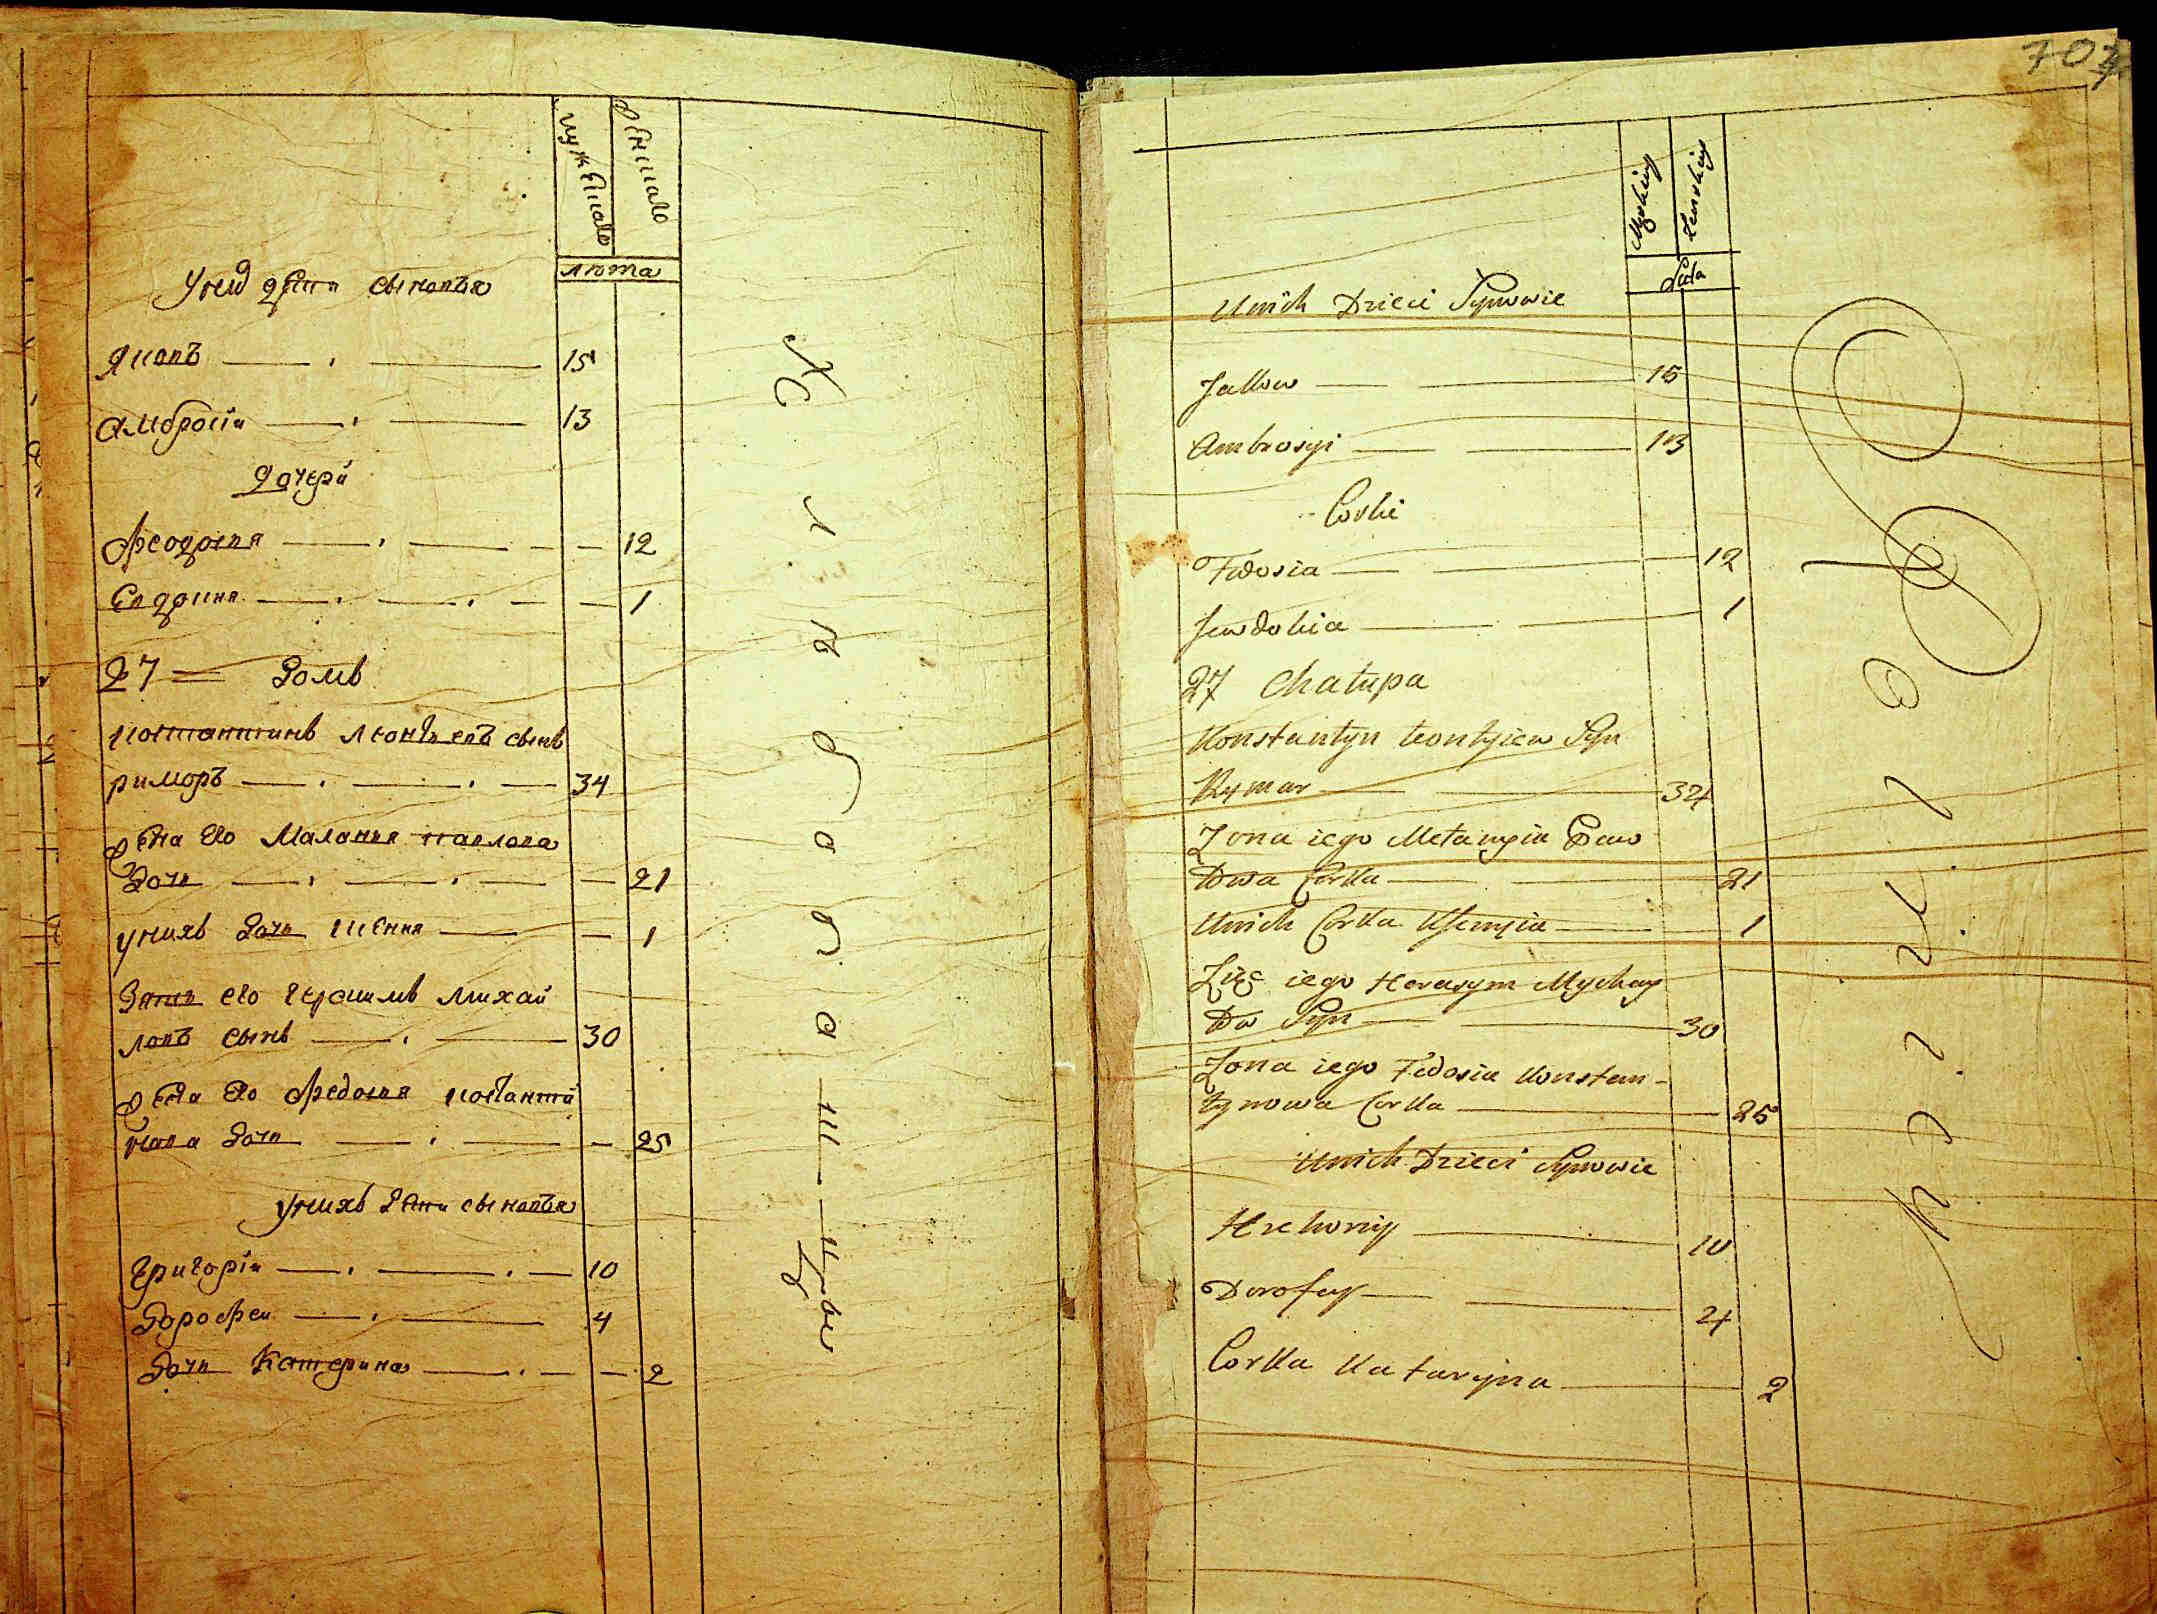 мужескаго
женскаго
лѣта
У нихъ дѣти сыновья
Яковъ 15
Амбросій 13
дочери
Феодосия 12
Евдокия 1
27 домъ
Костантинъ Леонтьевъ сынъ
римаръ 34
жена его Маланья павлова
дочь 21
у нихъ дочь ксения 1
Зять его герасимъ михай
ловъ сынъ 30
жена его Федосия костанти
нова дочь 25
у нихъ дѣти сыновья
Григорій 10
дорофеи 4
дочь катерина 2
К лѣбобашны
707
Męskiey
Zenskiey
Lata
Unich Dzieci Synowie
Jakow 15
Ambrosyi 13
Corki
Fedosia 12
Jewdokia 1
27 Chałupa
Konstantyn Leontyiew Syn
Rymar 34
Zona iego Mełanyia Paw
łowa Corka 21
Unich Corka Xsienyia 1
Zięć iego Herasym Mychay
łow Syn 30
Zona iego Fedosia Konstan-
tynowa Corka 25
Unich Dzieci Synowie
Hrehoriy 10
Dorofey 4
Corka Kataryna 2